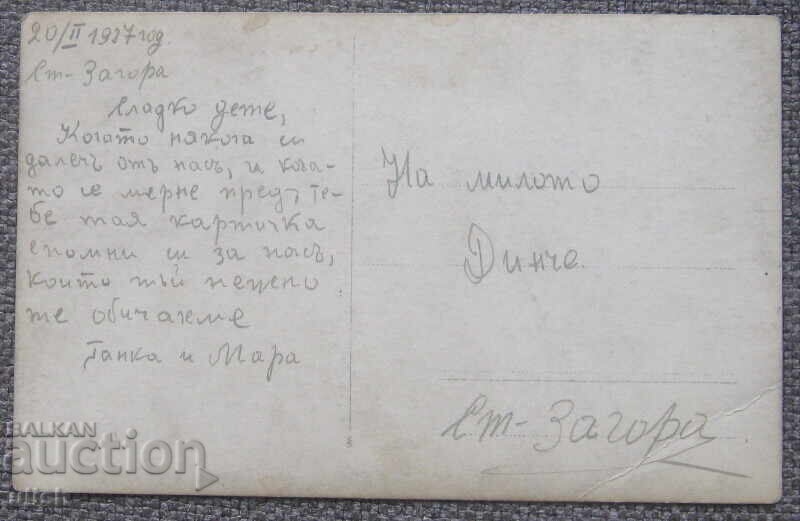 20/II 1927 год.
Ст-Загора
Сладко дете,
Когато някога си
далечъ отъ насъ, и кога-
то се мерне предъ те-
бе тая картичка
спомни си за насъ,
които тъй нежно
те обичахме
Танка и Мара
На милото
Динче.
Ст-Загора
BALKAN
auction